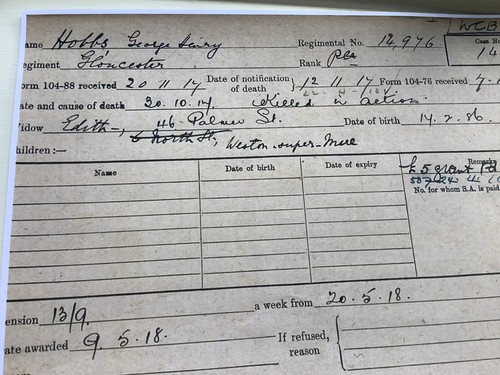 WCB
ame Hobbs, George Henry Regimental No. 14976 Case No
egiment Gloucester Rank Pte 14
orm 104-88 received 20 11 17 Date of notification of death } 12 11 17 Form 104-76 received 7.
ate and cause of death 30.10.17. Killed in action
idow Edith, 46 Palmer St. Date of birth 14.2.86.
6 North St, Weston-super-Mare
hildren:—
Name Date of birth Date of expiry Remarks
£5 grant Pd
No. for whom S.A. is paid
ension 13/9 a week from 20.5.18.
ate awarded 9.5.18. If refused, reason